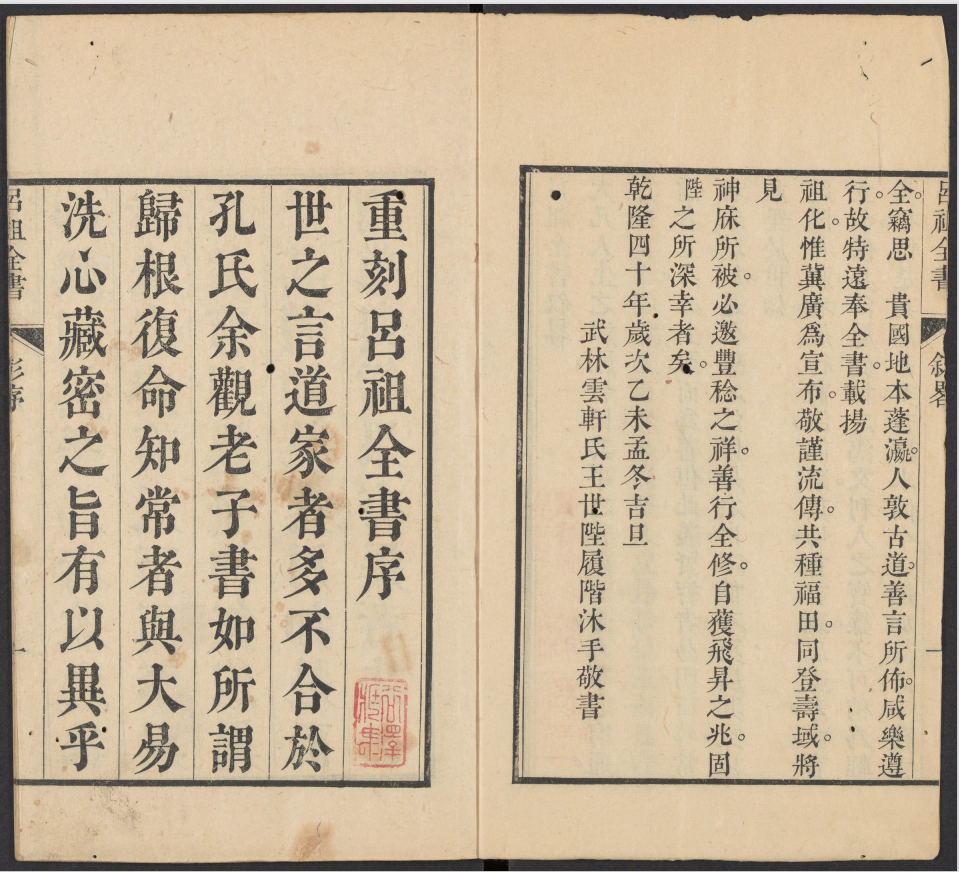 呂祖全書 敘畧 一
全竊思 貴國地本蓬瀛人敦古道善言所佈咸樂遵
行故特遠奉全書載揚
祖化惟冀廣爲宣布敬謹流傳共種福田同登壽域將
見
神庥所被必邀豐稔之祥善行全修自獲飛昇之兆固
陛之所深幸者矣
乾隆四十年歲次乙未孟冬吉旦
武林雲軒氏王世陛履階沐手敬書
重刻呂祖全書序
世之言道家者多不合於
孔氏余觀老子書如所謂
歸根復命知常者與大易
洗心藏密之旨有以異乎
呂祖全書 彭序 一